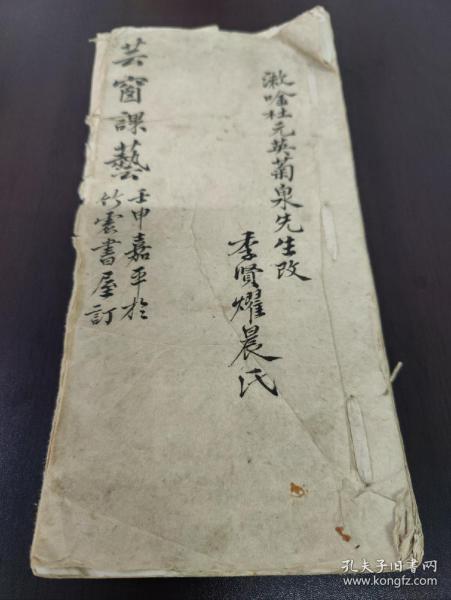 漱唫杜元英菊泉先生改
季賢耀晨氏
芸窗課藝
壬申嘉平於
竹雲書屋訂
孔夫子旧书网
www.kongfz.com